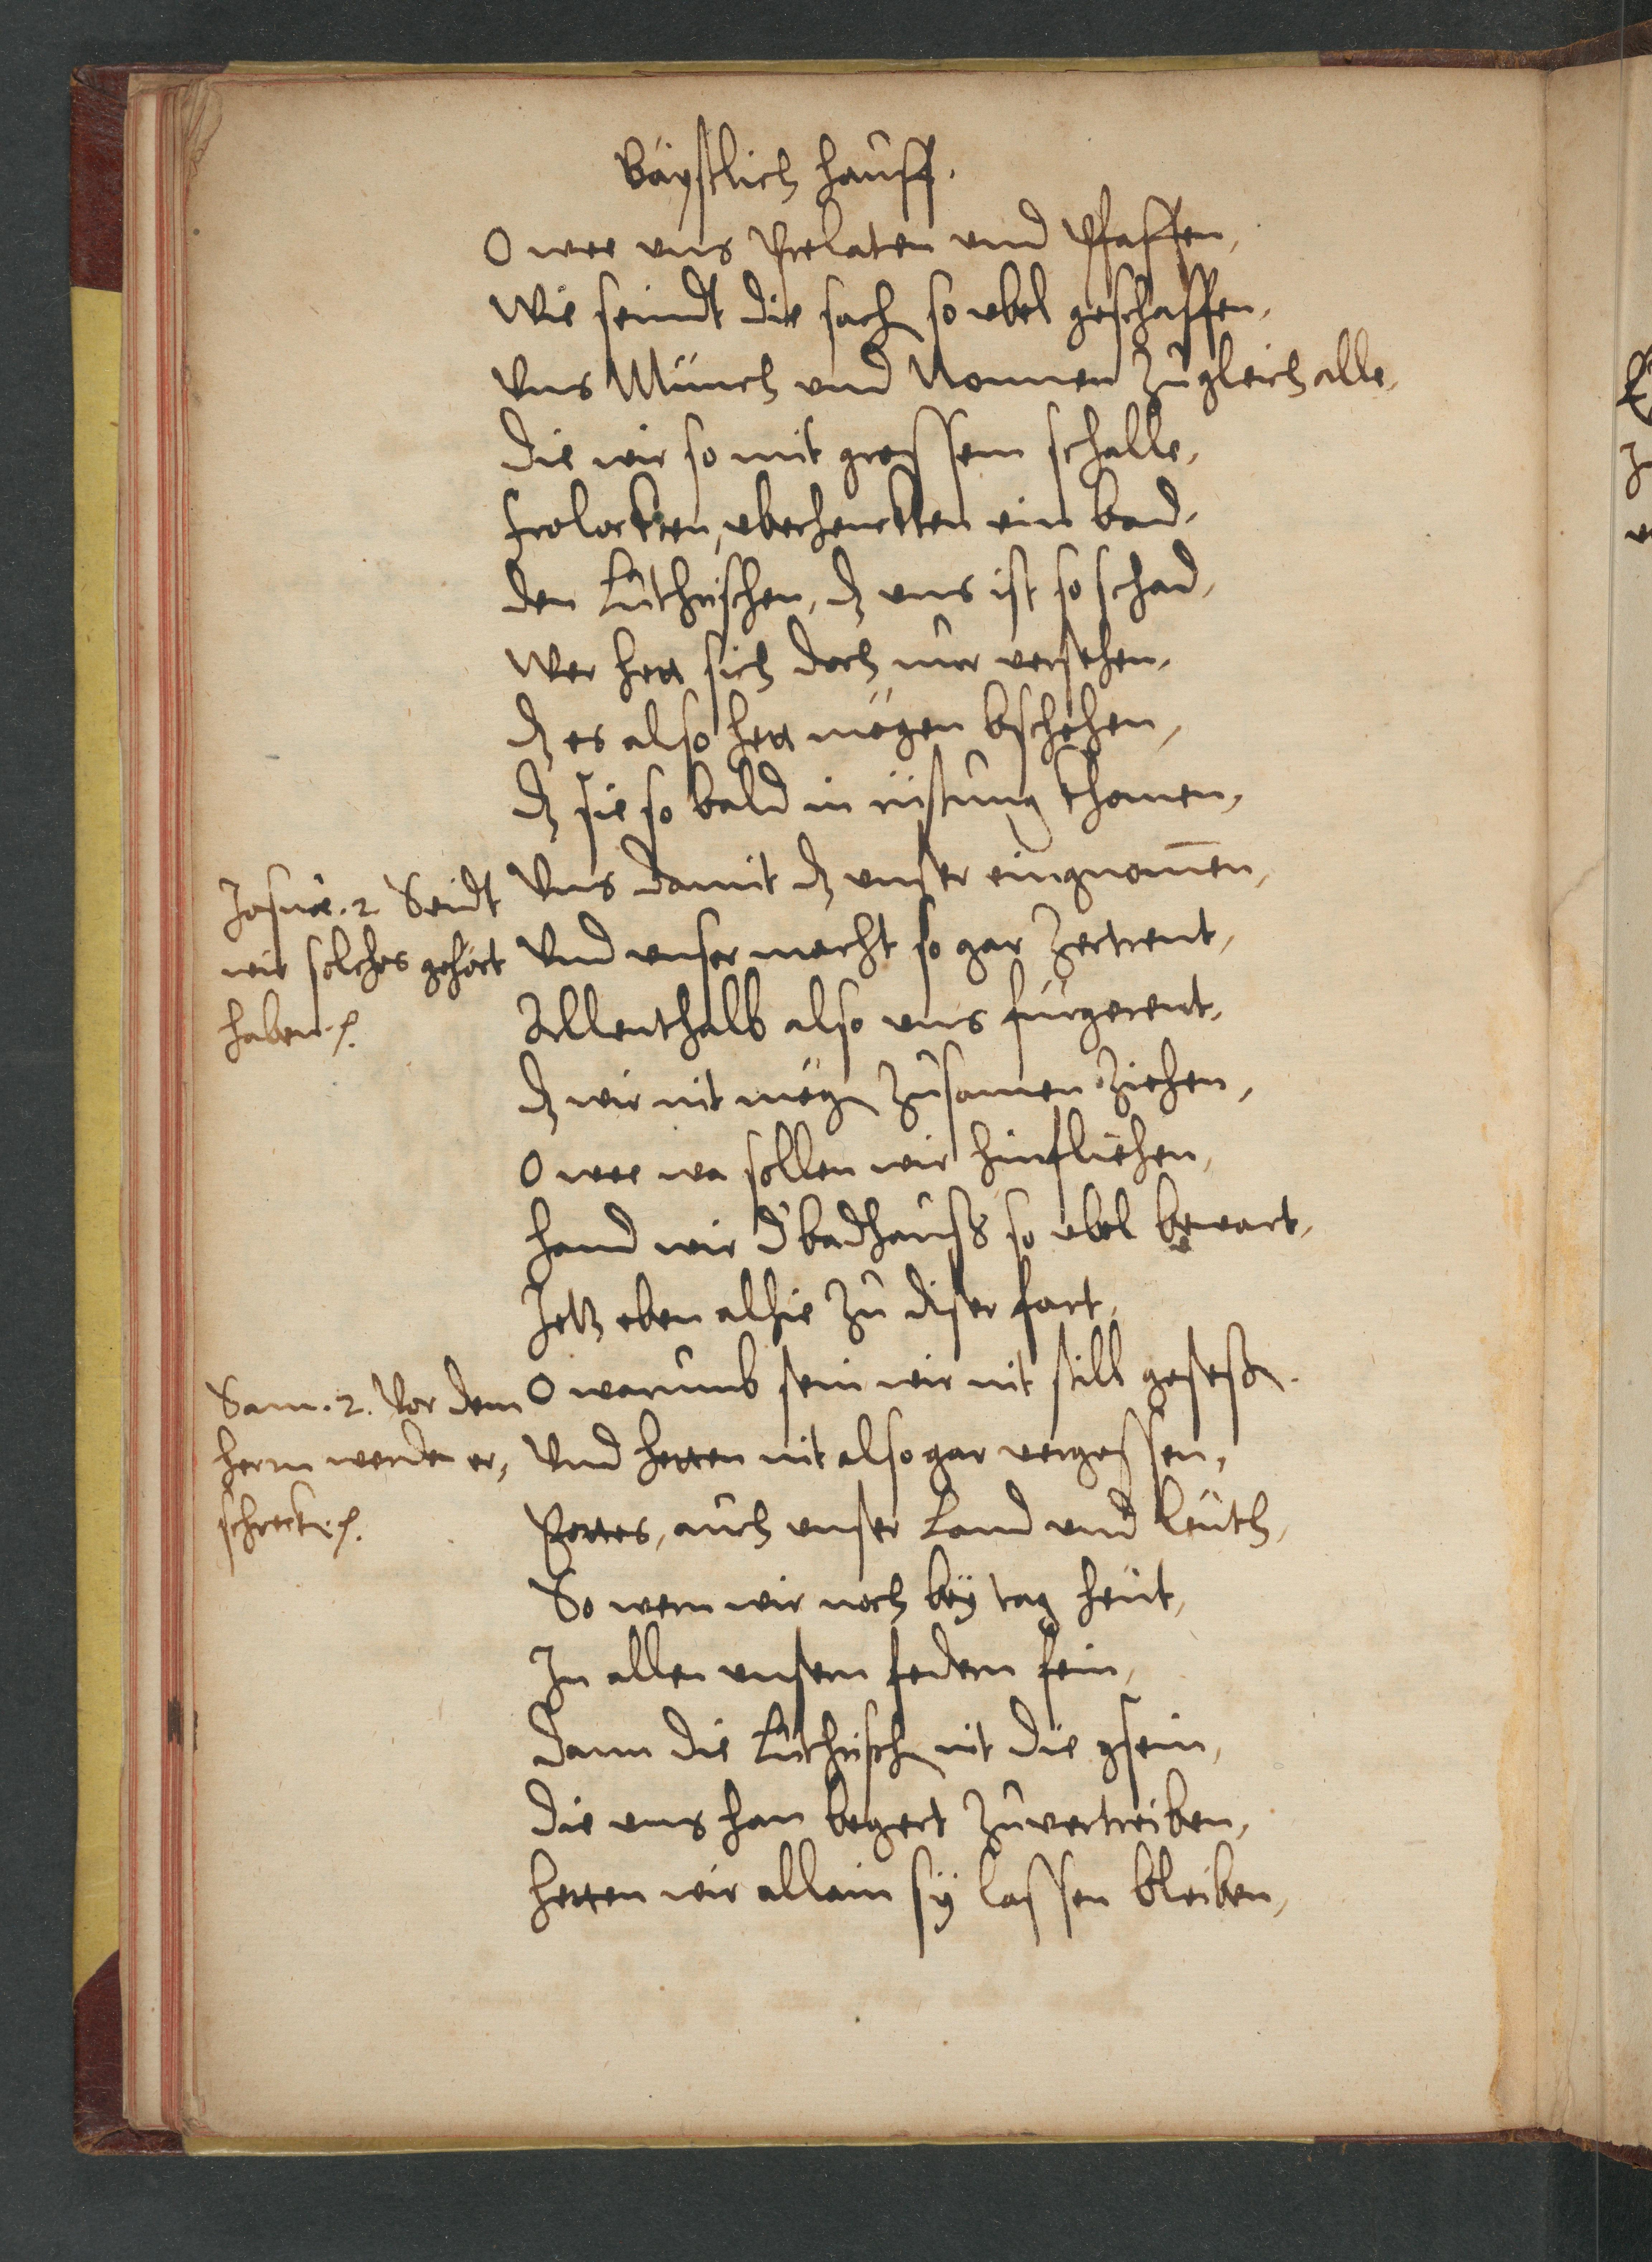 Bäpstlich hauff.
O wee uns Prelaten und Pfaffen,
Wie seindt die sach so ubel geschaffen,
Uns Münch und Nonnen zugleich alle,
Die wir so mit grossem schalle,
Frolockten, uberhenckten ein bad,
den Lutherischen, dz uns ist so schad,
Wer hett sich doch nur versehen,
dz es also hett mögen bschehen,
dz sie so bald in rüstung khomen,
Josuæ. 2. Seidt
wir solches gehört
haben.
Uns damit dz unser eingnom̄en,
Und unser macht so gar zertrent,
Allenthalb also uns fürgerent,
dz wir nit mögn zusamen ziehen,
O wee wa sollen wir hinfliehen,
hand wir d' badhauß so ubel bewart,
Jetz eben alhie zu diser fart,
Sam. 2. Vor dem
herrn werden er,
schreckn.
O warumb sein wir nit still gesessn.
Und hetten nit also gar vergessen,
Gottes, auch unser Land und Leuth,
So wern wir noch bey tag heut,
In allen unsern federn fein,
Dann die Lutherischn nit die gsein,
die uns han begert zuvertreiben,
hetten wir allain sy lassen bleiben,